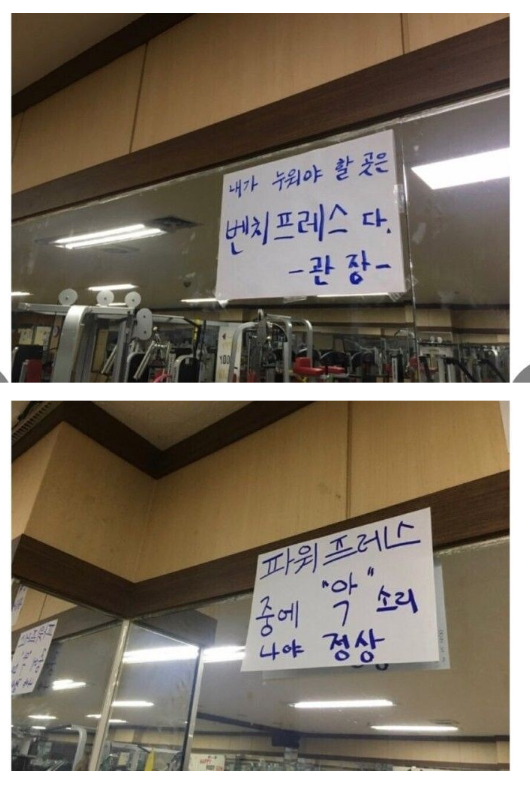 내가 누워야 할 곳은
벤치프레스 다.
-관 장-
100
파워프레스
중에 "악" 소리
나야 정상